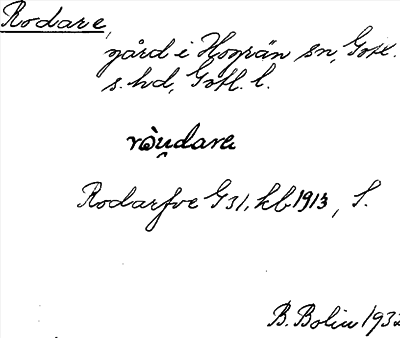 Rodare,
gård i Hogrän sn, Gotl.
s. hd, Gotl. l.
ròu̯dara
Rodarfve G31, kb 1913, S.
B. Bolin 1932